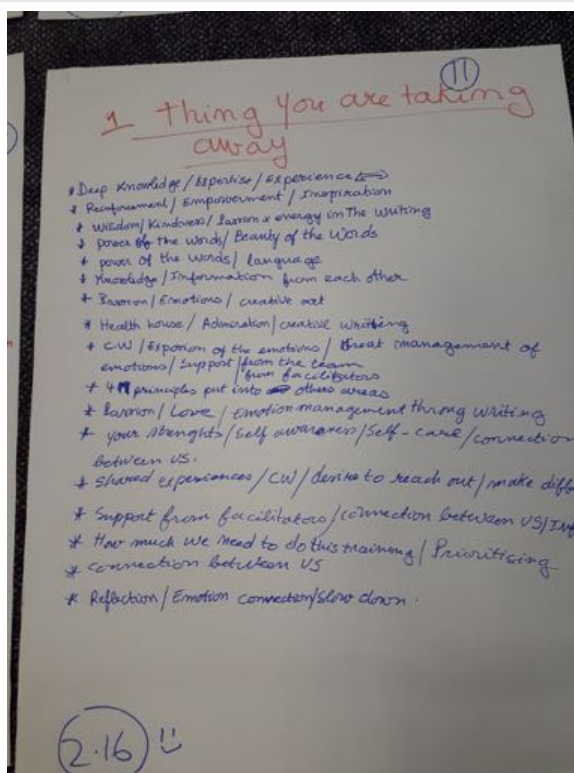 11
1 thing you are taking
away
* Deep Knowledge / Expertise / Experience
* Reinforcement / Empowerment / Inspiration
* Wisdom / Kindness / Passion & energy in the writing
* power of the words / Beauty of the words
* power of the words / language
* Knowledge / Information from each other
* Passion / Emotions / creative art
* Health house / Admiration / creative writing
* CW / of the emotions / Great management of
emotions / Support from the team
from facilitators
* 4 principles put into others areas
* Passion / Love / Emotion management throug writing
* your strenghts / Self awareness / Self-care / connection
between US.
* Shared experiences / CW / desire to reach out / make diff
* Support from facilitators / connection between US /
* How much we need to do this training / Prioritising
* connection between US
* Reflection / Emotion connection / Slow down.
2.16